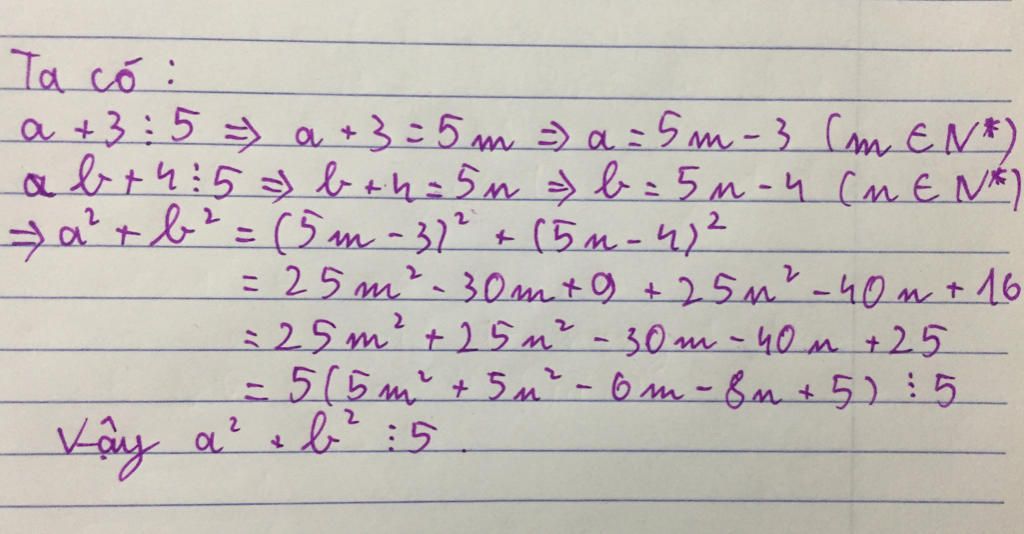 Ta có :
a + 3 ⋮ 5 ⇒ a + 3 = 5m ⇒ a = 5m - 3 (m ∈ N*)
a b + 4 ⋮ 5 ⇒ b + 4 = 5n ⇒ b = 5n - 4 (n ∈ N*)
⇒ a² + b² = (5m - 3)² + (5n - 4)²
= 25m² - 30m + 9 + 25n² - 40n + 16
= 25m² + 25n² - 30m - 40n + 25
= 5(5m² + 5n² - 6m - 8n + 5) ⋮ 5
Vậy a² + b² ⋮ 5 .